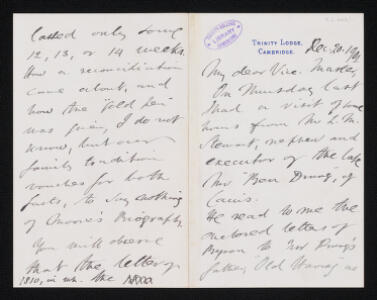 lasted only some
12, 13, or 14 weeks.
How a reconciliation
came about, and
how the "gold pen"
was given, I do not
know, but our
family tradition
vouches for both
facts, to say nothing
of Moore's Biography.
You will observe
that the letter of
1810, in wh. the
TRINITY LODGE,
CAMBRIDGE.
Dec. 20. 19
My dear Vice-Master,
On Thursday last
I had a visit of some
hours from Mr. H. M.
Stewart, nephew and
executor of the late
Mr Ben Drury, of
Caius.
He read to me the
enclosed letters of
Byron to Mr Drury's
father, "Old Harry" as